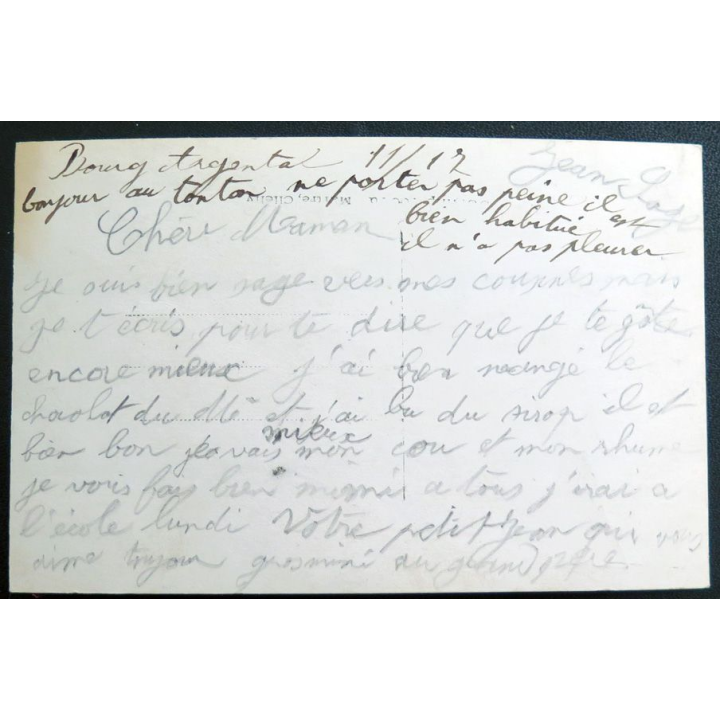 Bourg Argental 11/17
bonjour au tonton ne porter pas peine il est
bien habitué
il n'a pas pleurer
Jean
Chère Maman
je suis bien sage vers mes couzines mais
je t'écris pour te dire que je te gôte
encore mieux j'ai bien mangé le
chaolat du et j'ai bu du sirop il et
bien bon mieux mon cou et mon rhume
je vous fais bien mimi a tous j'irai a
l'école lundi Votre petit Jean qui vous
aime toujour grosmimi au grand père